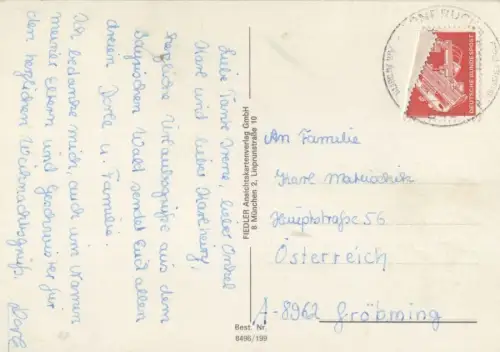 Liebe Tante Irene, lieber Onkel
Karl und lieber Karlheinz,
herzliche Urlaubsgrüße aus dem
Bayrischen Wald sendet Euch allen
dreien Dorle u. Familie.
Ich bedanke mich, auch im Namen
meiner Eltern und Geschwister für
den herzlichen Weihnachtsgruß. Dorle
FIEDLER Ansichtskartenverlag GmbH
8 München 2, Linprunstraße 10
Best. Nr.
8496/199
DEUTSCHE BUNDESPOST
An Familie
Karl
Hauptstraße 56
Österreich
A-8962 Gröbming